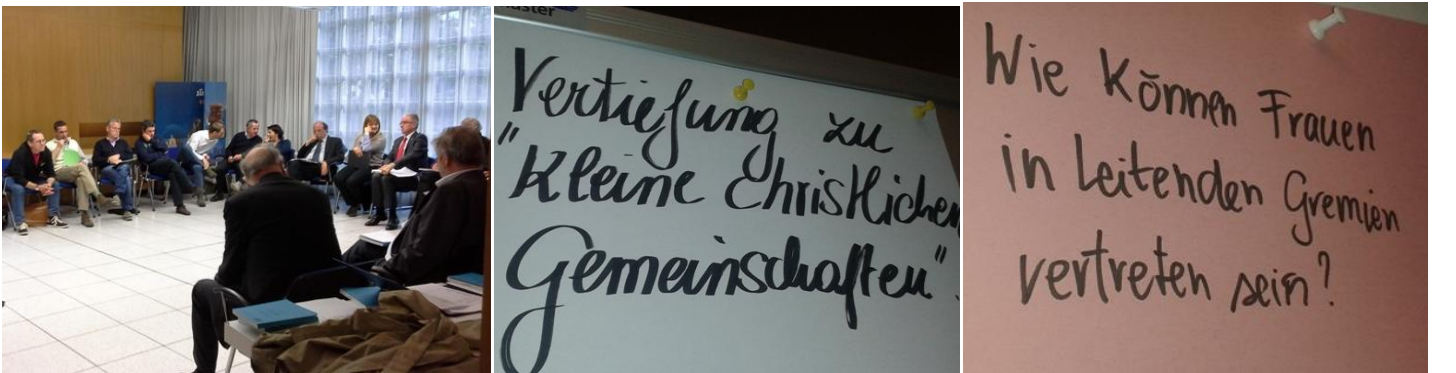 Vertiefung zu
"Kleine Christlichen
Gemeinschaften".
Wie können Frauen
in leitenden Gremien
vertreten sein?